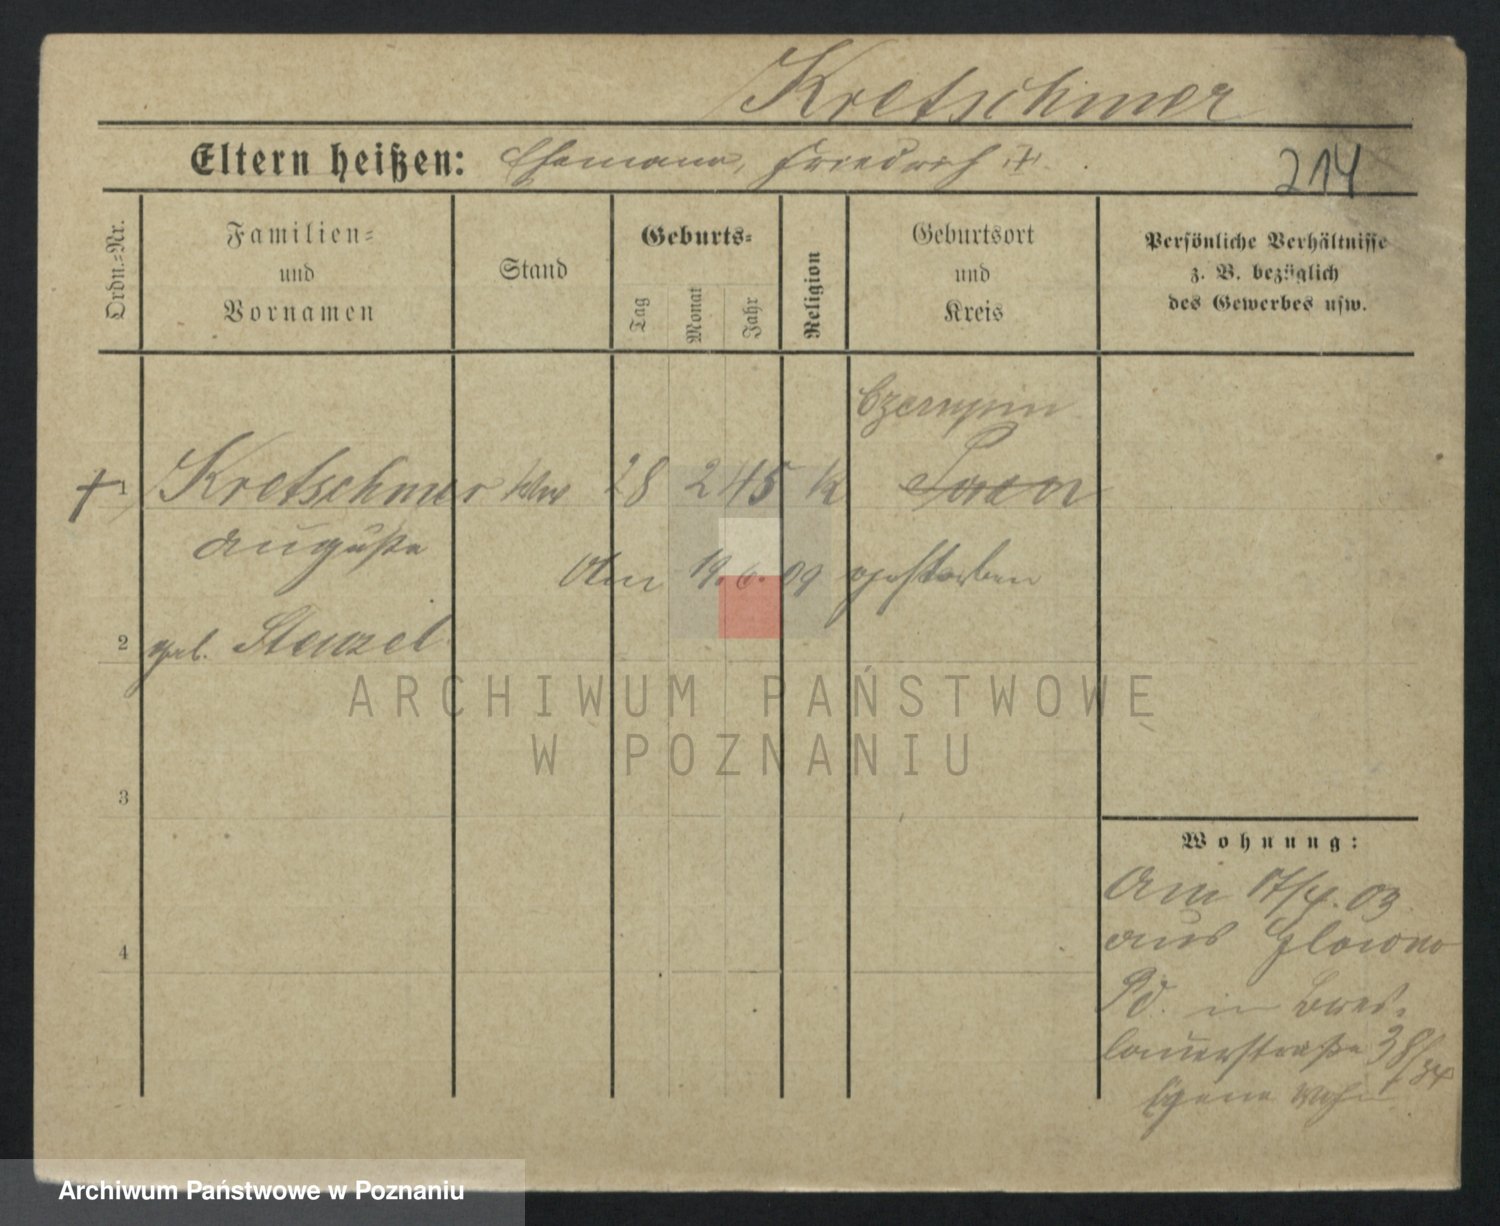 Kretschmer
Eltern heißen: Ehemann, Friedrich +.
214
Ordn.-Nr.
Familien-
und
Vornamen
Stand
Geburts-
Tag
Monat
Jahr
Religion
Geburtsort
und
Kreis
Persönliche Verhältnisse
z. B. bezüglich
des Gewerbes usw.
Czempin
+ 1 Kretschmer Ww 28 2 45 k Posen
Auguste
Am 19. 6. 09 gestorben
2 geb. Stenzel
ARCHIWUM PAŃSTWOWE
W POZNANIU
3
Wohnung:
Am 17/4. 03
aus Glowno
4
Pd. in Bres-
lauerstraße 38/
Eigene Wohn
Archiwum Państwowe w Poznaniu